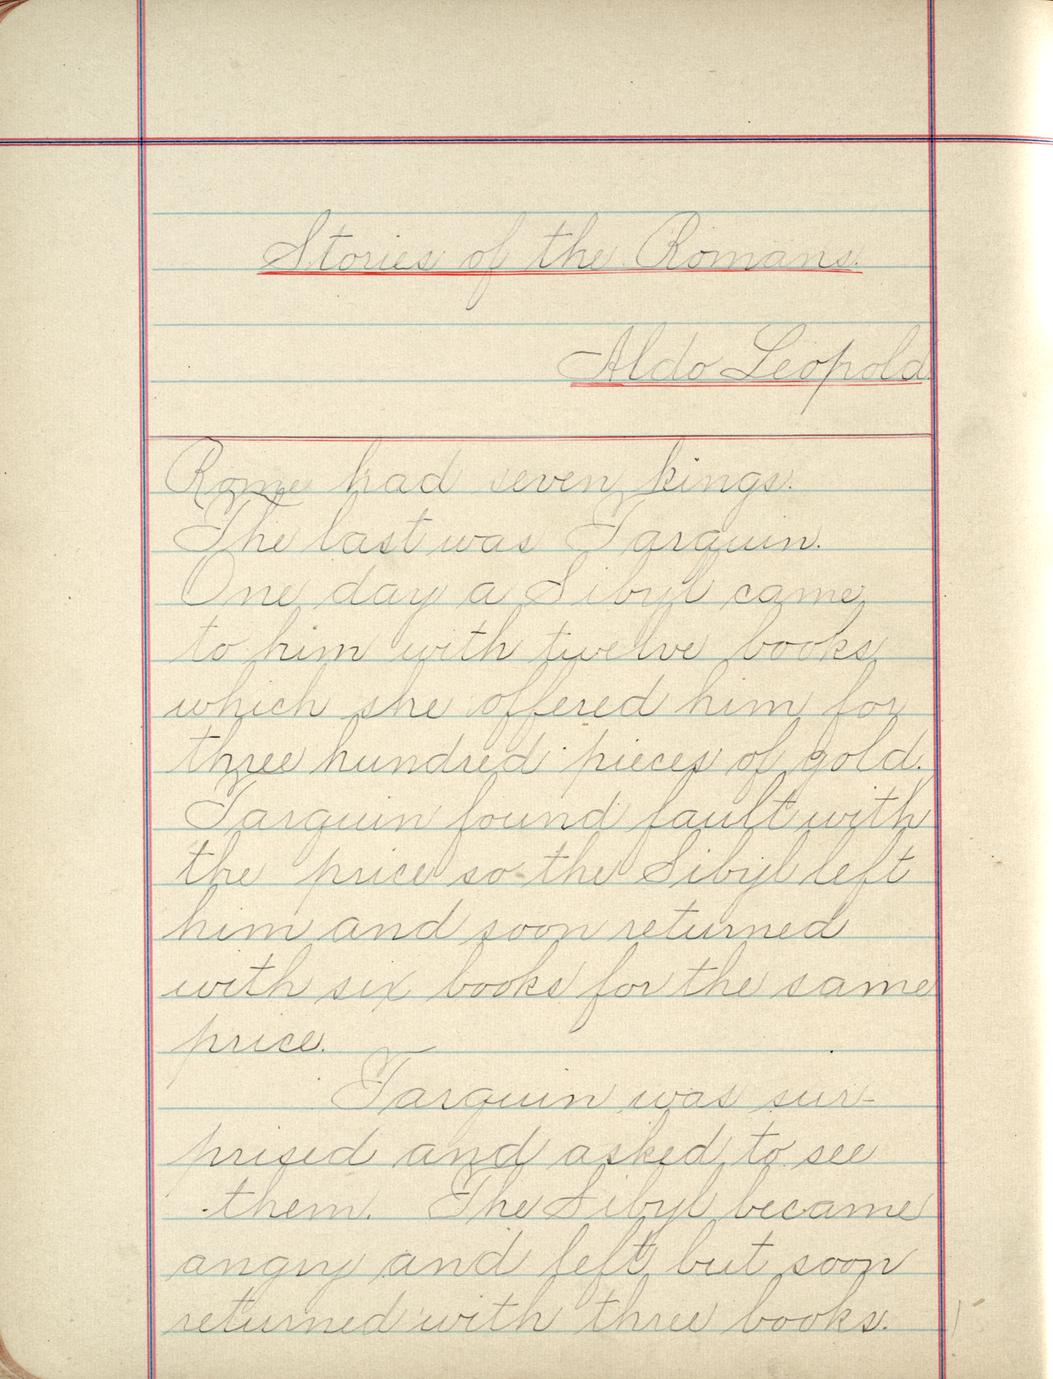 Stories of the Romans.
Aldo Leopold.
Rome had seven kings.
The last was Tarquin.
One day a Sibyl came
to him with twelve books
which she offered him for
three hundred pieces of gold.
Tarquin found fault with
the price so the Sibyl left
him and soon returned
with six books for the same
price.
Tarquin was sur-
prised and asked to see
them. The Sibyl became
angry and left, but soon
returned with three books.